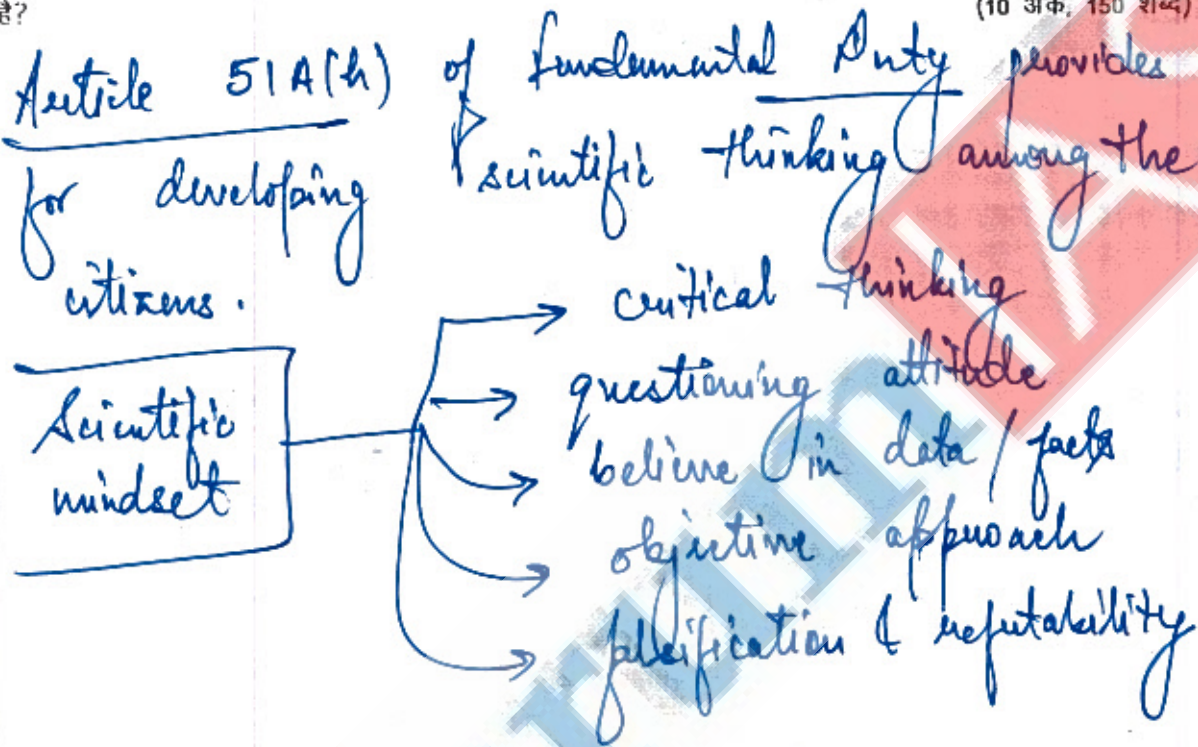 है?
(10 अंक, 150 शब्द)
Article 51A(h) of Fundamental Duty provides
for developing scientific thinking among the
citizens.
Scientific mindset
critical thinking
questioning attitude
believe in data / facts
objective approach
falsification & refutability
IAS
rum